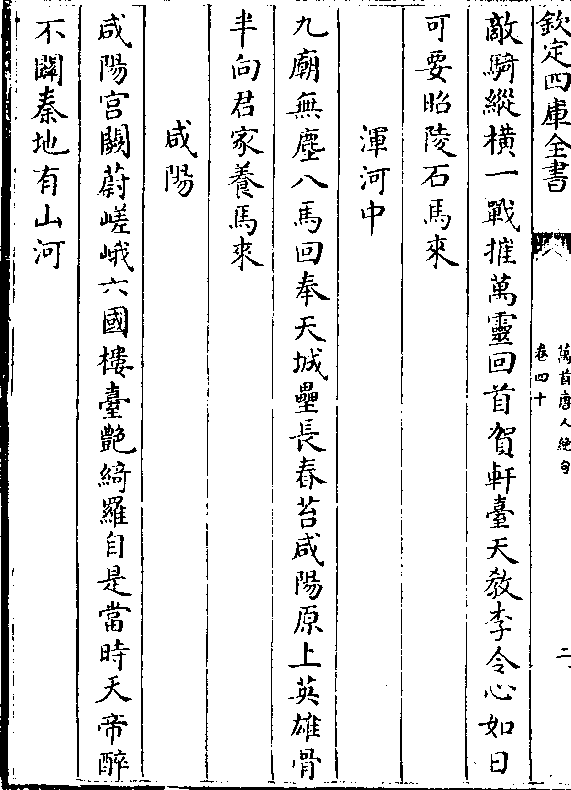 欽定四庫全書
萬首唐人絶句
卷四十
二
敵騎縱橫一戰摧萬靈回首賀軒臺天教李令心如日
可要昭陵石馬來
渾河中
九廟無塵八馬回奉天城壘長春苔咸陽原上英雄骨
半向君家養馬來
咸陽
咸陽宫闕蔚嵯峨六國樓臺艶綺羅自是當時天帝醉
不闗秦地有山河